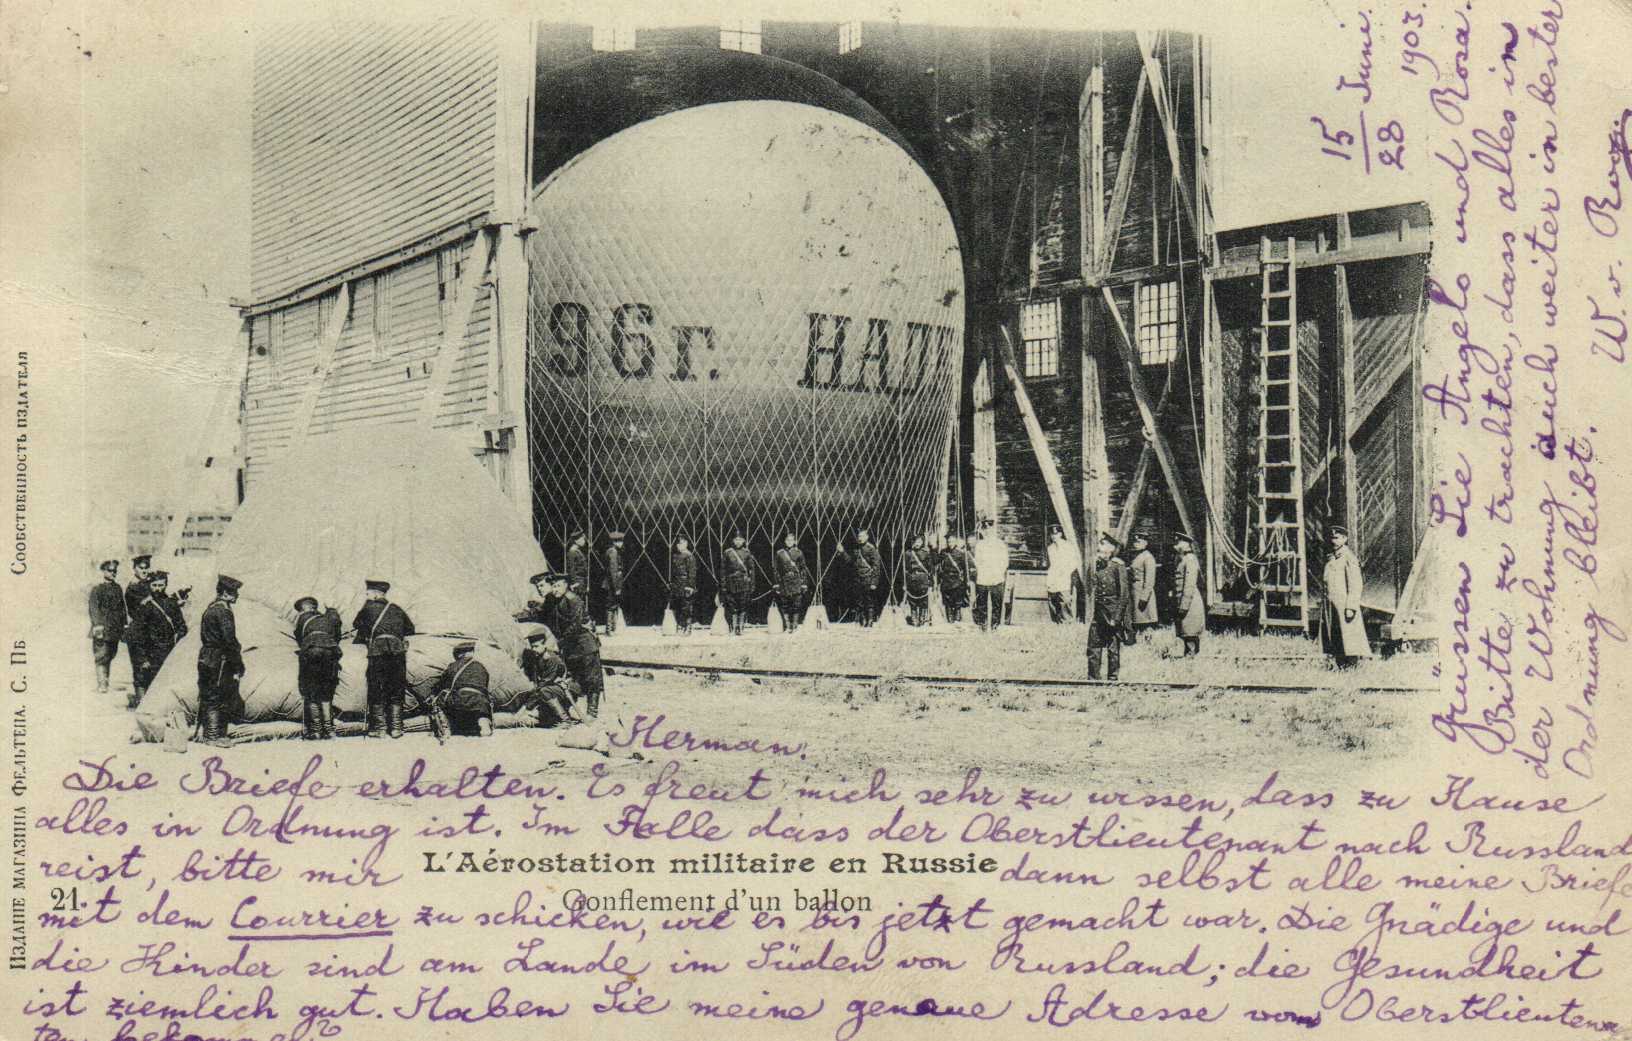 96г. НАП
15 Juni.
28 1903.
Herman.
Die Briefe erhalten. Es freut mich sehr zu wissen, dass zu Hause
alles in Ordnung ist. Im Falle dass der Oberstlieutenant nach Russland
reist, bitte mir dann selbst alle meine Briefe
L'Aérostation militaire en Russie
21.
Gonflement d'un ballon
mit dem Courrier zu schicken, wie es bis jetzt gemacht war. Die Gnädige und
die Kinder sind am Lande im Süden von Russland; die Gesundheit
ist ziemlich gut. Haben Sie meine genaue Adresse vom Oberstlieutena
ten bekommen?
Grüssen Sie Angelo und Rosa.
Bitte zu trachten, dass alles im
der Wohnung auch weiter in bester
Ordnung bleibt.
W. v.
Издание магазина Фельтена. С. Пб Сообственность издателя